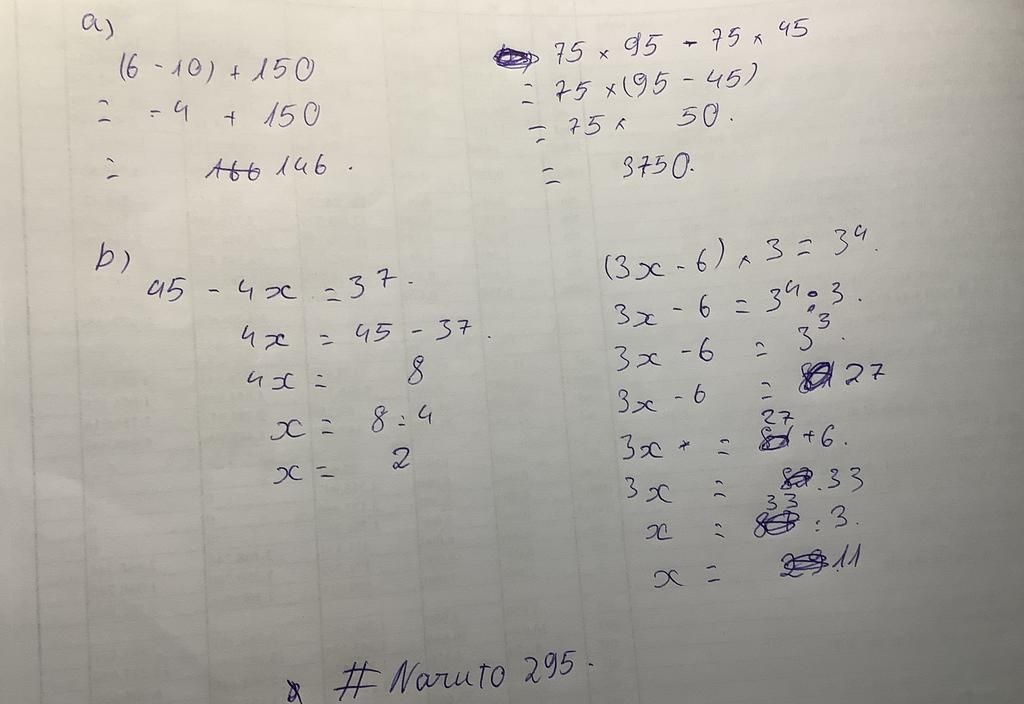 a)
(6 - 10) + 150
= -4 + 150
= 146.
75 × 95 - 75 × 45
= 75 × (95 - 45)
= 75 × 50.
= 3750.
b)
45 - 4x = 37.
4x = 45 - 37.
4x = 8
x = 8 : 4
x = 2
(3x - 6) × 3 = 3⁴.
3x - 6 = 3⁴ : 3.
3x - 6 = 3³
3x - 6 = 27
3x = 27 + 6.
3x = 33
x = 33 : 3.
x = 11
# Naruto 295.